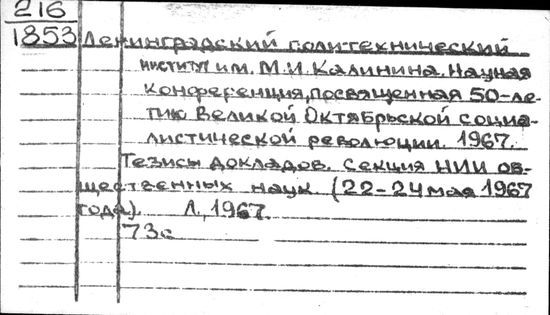 216
1853 Ленинградский политехнический
институт им. М.И. Калинина. Научная
конференция, посвященная 50-ле-
тию Великой Октябрьской социа-
листической революции. 1967.
Тезисы докладов. Секция НИИ об-
щественных наук (22-24 мая 1967
года). Л., 1967.
73с